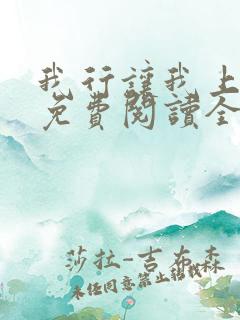 我行讓我上
免費閱讀全
莎拉-吉布森
未经同意禁止转载